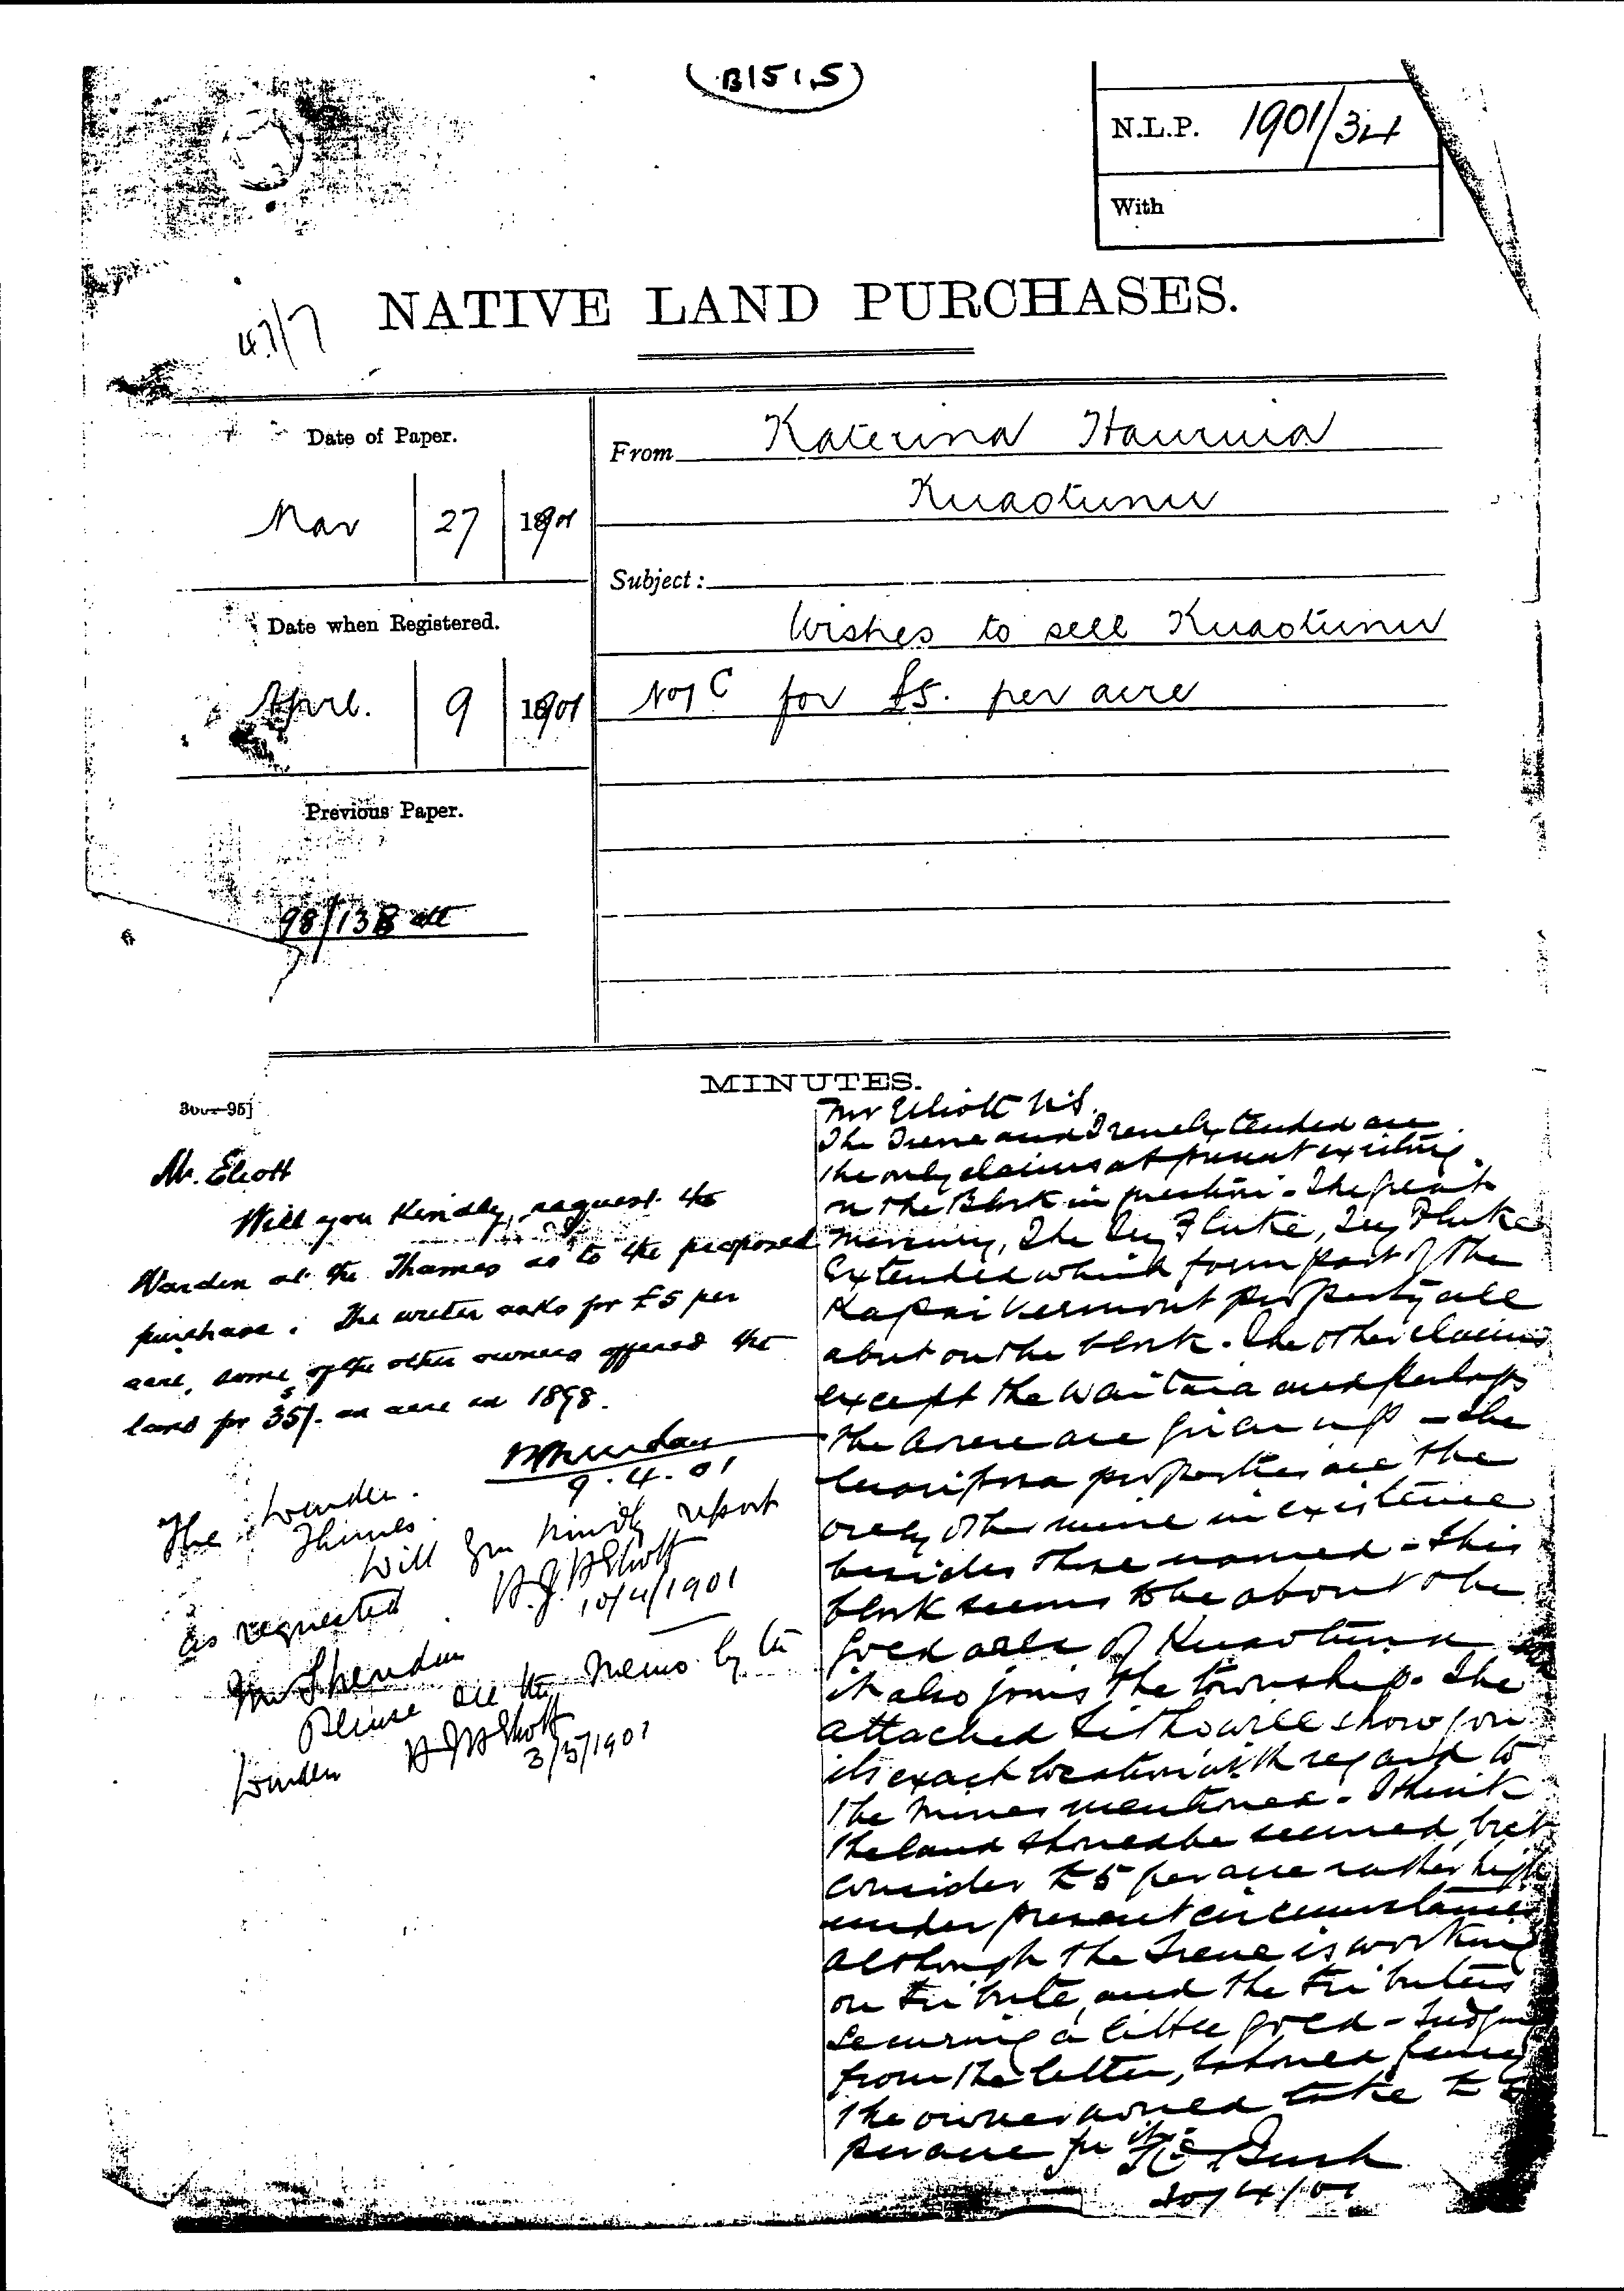 (B151,5)
N.L.P. 1901/34
With
47/7
NATIVE LAND PURCHASES.
Date of Paper.
Mar 27 1901
Date when Registered.
April. 9 1901
Previous Paper.
98/138 att
From Katerina Hauruia
Kuaotunu
Subject:
Wishes to sell Kuaotunu
No 1 C for £5. per acre
MINUTES.
Mr. Eliott
Will you kindly, request the
Warden at the Thames as to the proposed
purchase. The writer asks for £5 per
acre, some of the other owners offered the
land for 35/- an acre in 1898.
9.4.01
The Warden.
Thames.
Will you kindly report
as requested.
H.J.H Eliott
10/4/1901
Mr Sheridan
Please see the memo by the
Warden H.J.H Eliott
3/5/1901
Mr Elliott U.S.
The Irene and Irene Extended are
the only claims at present existing
on the Block in question - The Great
Mercury, The Try Fluke, Try Fluke
Extended which form part of the
Kapai Vermont property all
abut on the block. The other claims
except the Waitaia and perhaps
the are given up - the
Mariposa properties are the
only other mine in existence
besides those named - This
block seems to be about the
gold area of Kuaotunu
it also joins the township. The
attached Litho will show you
its exact location with regard to
the mines mentioned. I think
the land should be secured, but
consider £5 per acre rather high
under present circumstances
although the Irene is working
on tribute, and the tributers
securing a little gold - Judging
from the letter, I should fancy
the owner would take £
per acre for it.
Bush
30/4/01